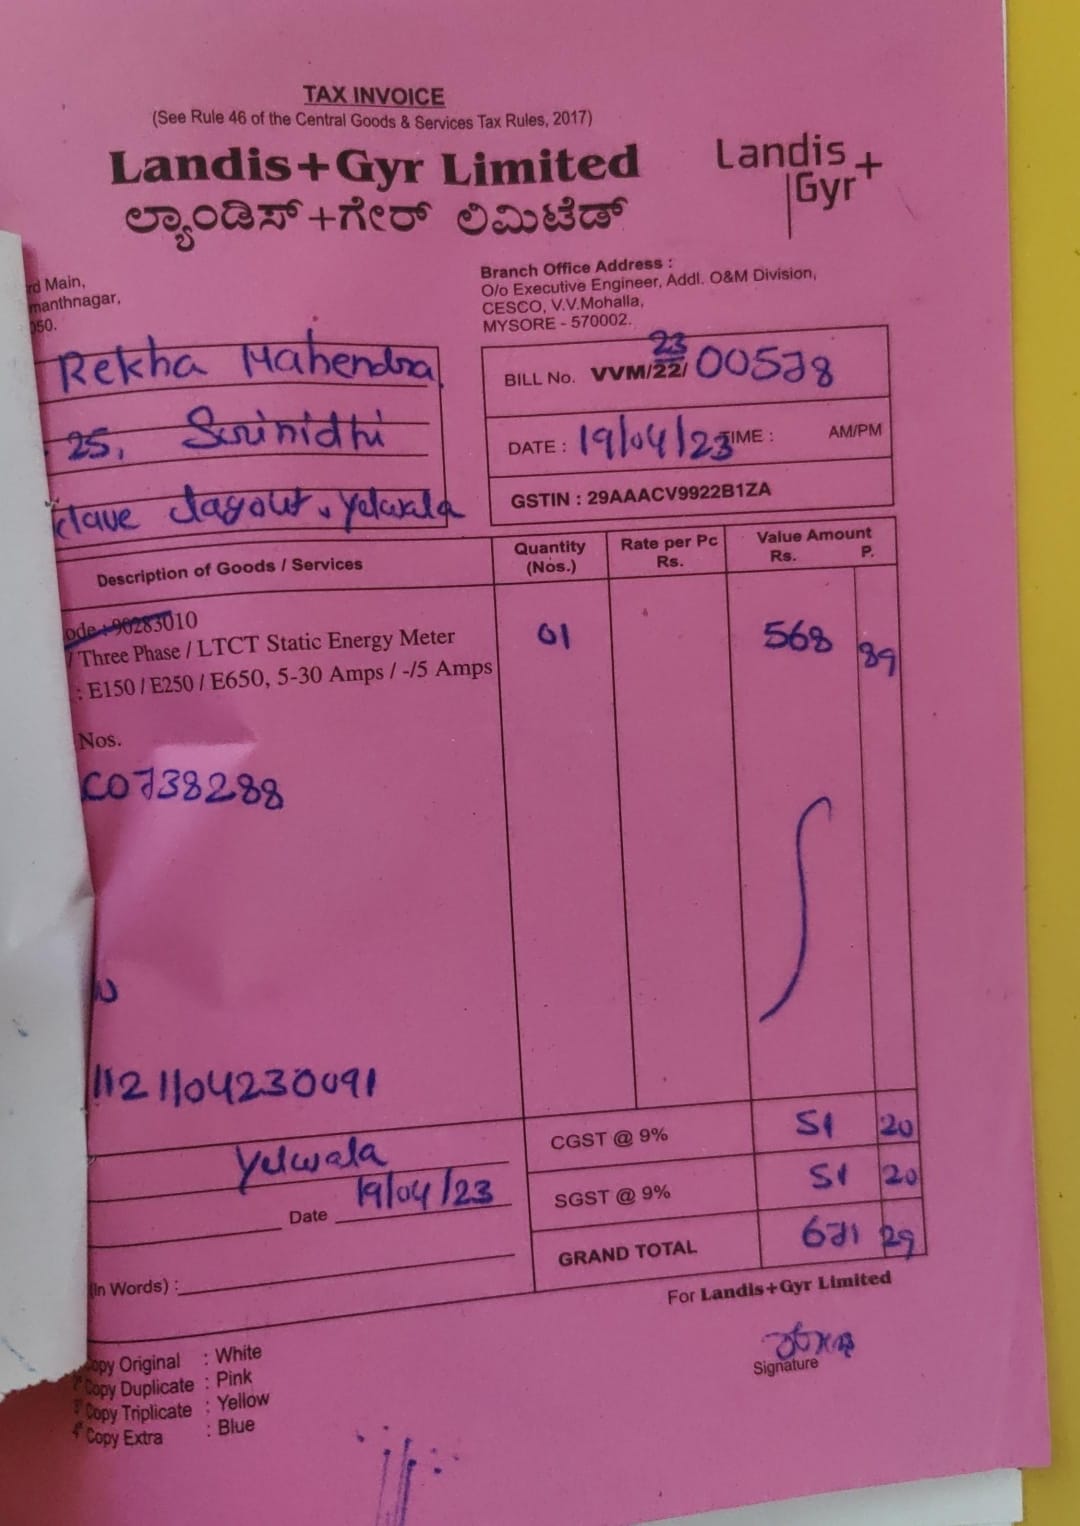 TAX INVOICE
(See Rule 46 of the Central Goods & Services Tax Rules, 2017)
Landis+Gyr Limited
ಲ್ಯಾಂಡಿಸ್+ಗೇರ್ ಲಿಮಿಟೆಡ್
Landis+
Gyr
rd Main,
manthnagar,
050.
Branch Office Address :
O/o Executive Engineer, Addl. O&M Division,
CESCO, V.V.Mohalla,
MYSORE - 570002.
Rekha Mahendra
25, Srinidhi
clave Layout, Yelwala
BILL No. VVM/22/ 23 00578
DATE : 19/04/23 TIME : AM/PM
GSTIN : 29AAACV9922B1ZA
Description of Goods / Services Quantity (Nos.) Rate per Pc Rs. Value Amount Rs. P.
ode : 90283010
/ Three Phase / LTCT Static Energy Meter 01 568 89
: E150 / E250 / E650, 5-30 Amps / -/5 Amps
Nos.
C0738288
1121104230091
Yelwala
Date 19/04/23
CGST @ 9% 51 20
SGST @ 9% 51 20
GRAND TOTAL 671 29
(In Words) :
For Landis+Gyr Limited
Signature
opy Original : White
Copy Duplicate : Pink
3 Copy Triplicate : Yellow
4 Copy Extra : Blue